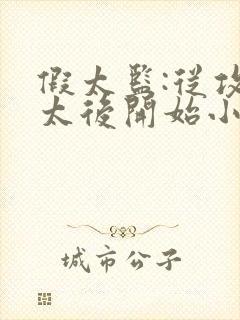 假太監:從攻
太後開始小
城市公子